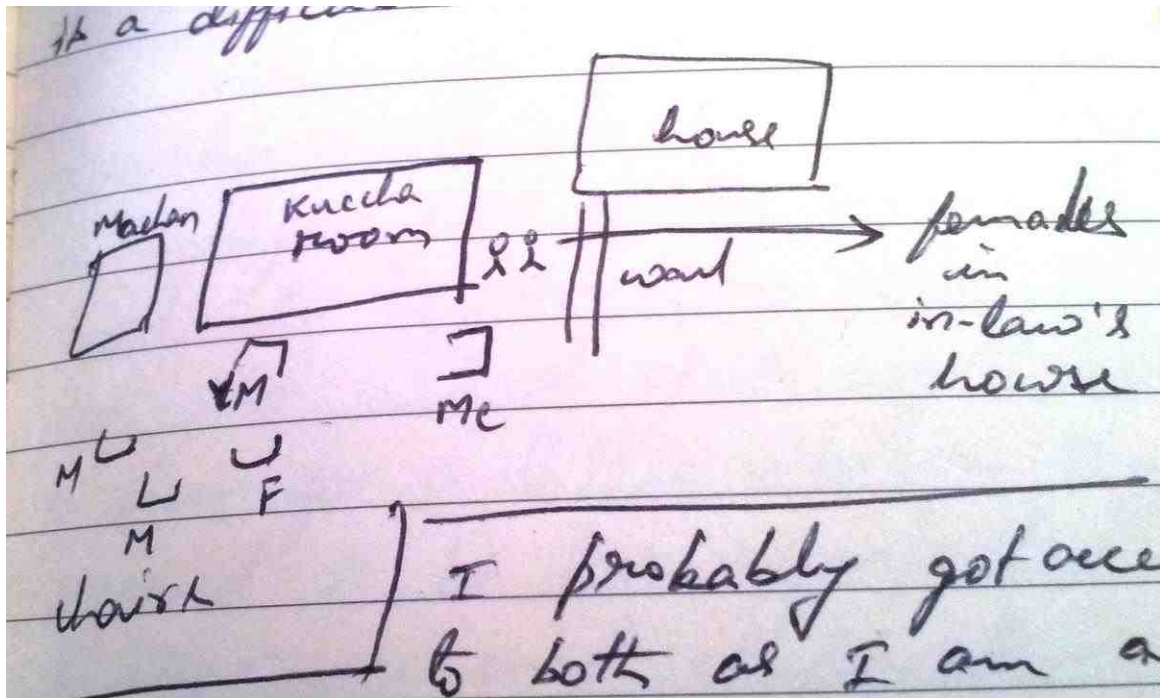 is a
house
Machan
Kuccha
room
wall
females
in
in-law's
house
M
Me
M
F
M
chairs
I probably got acce
to both as I am a